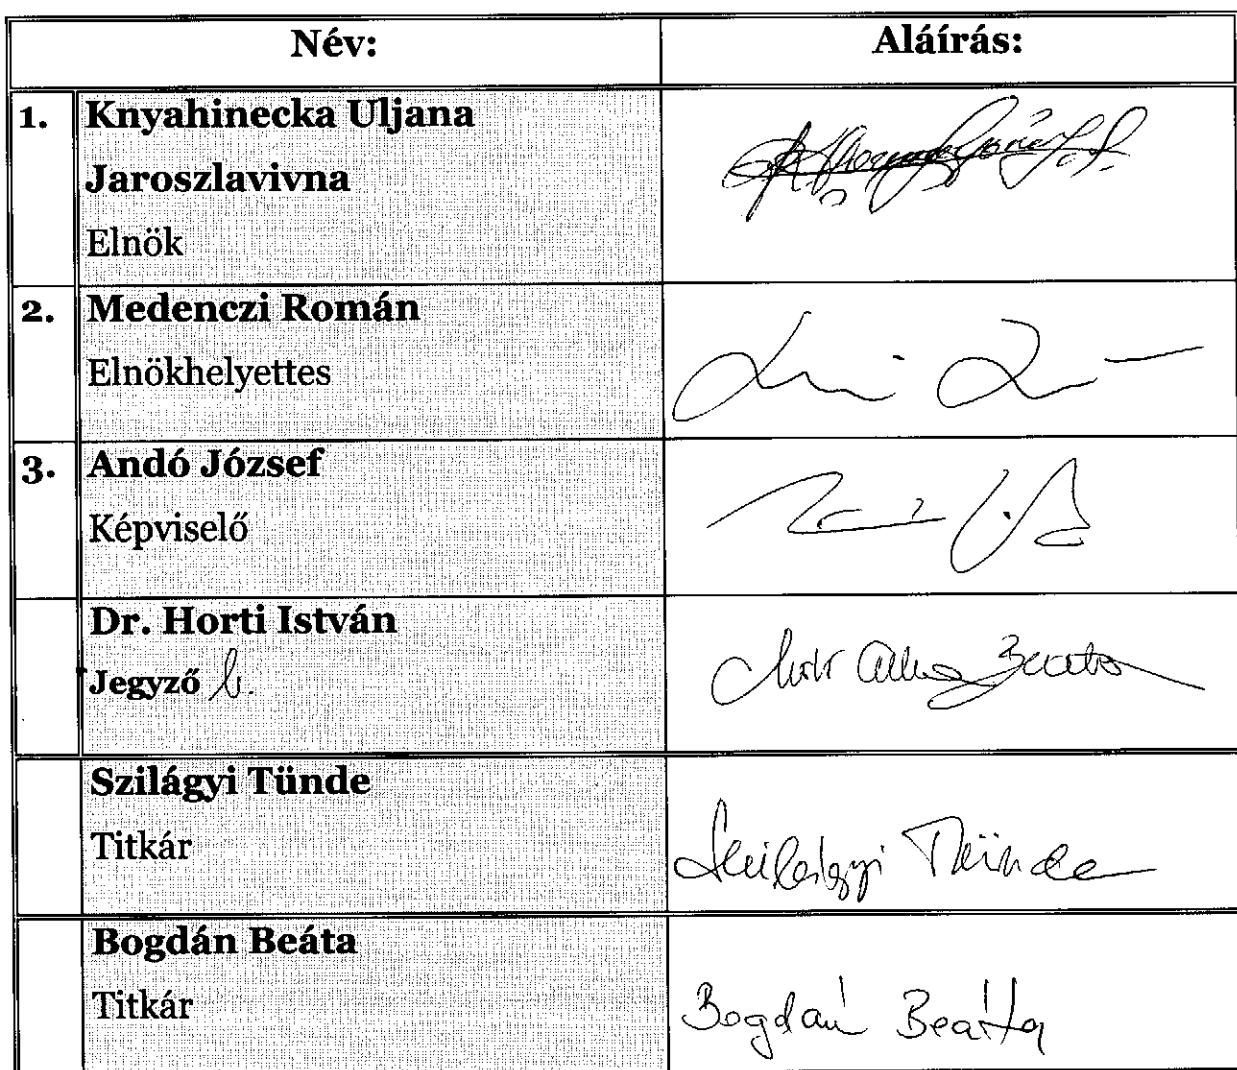 Név: Aláírás:
1. Knyahinecka Uljana
Jaroszlavivna
Elnök
2. Medenczi Román
Elnökhelyettes
3. Andó József
Képviselő
Dr. Horti István
Jegyző h.
Szilágyi Tünde
Titkár
Szilágyi Tünde
Bogdán Beáta
Titkár
Bogdán Beáta